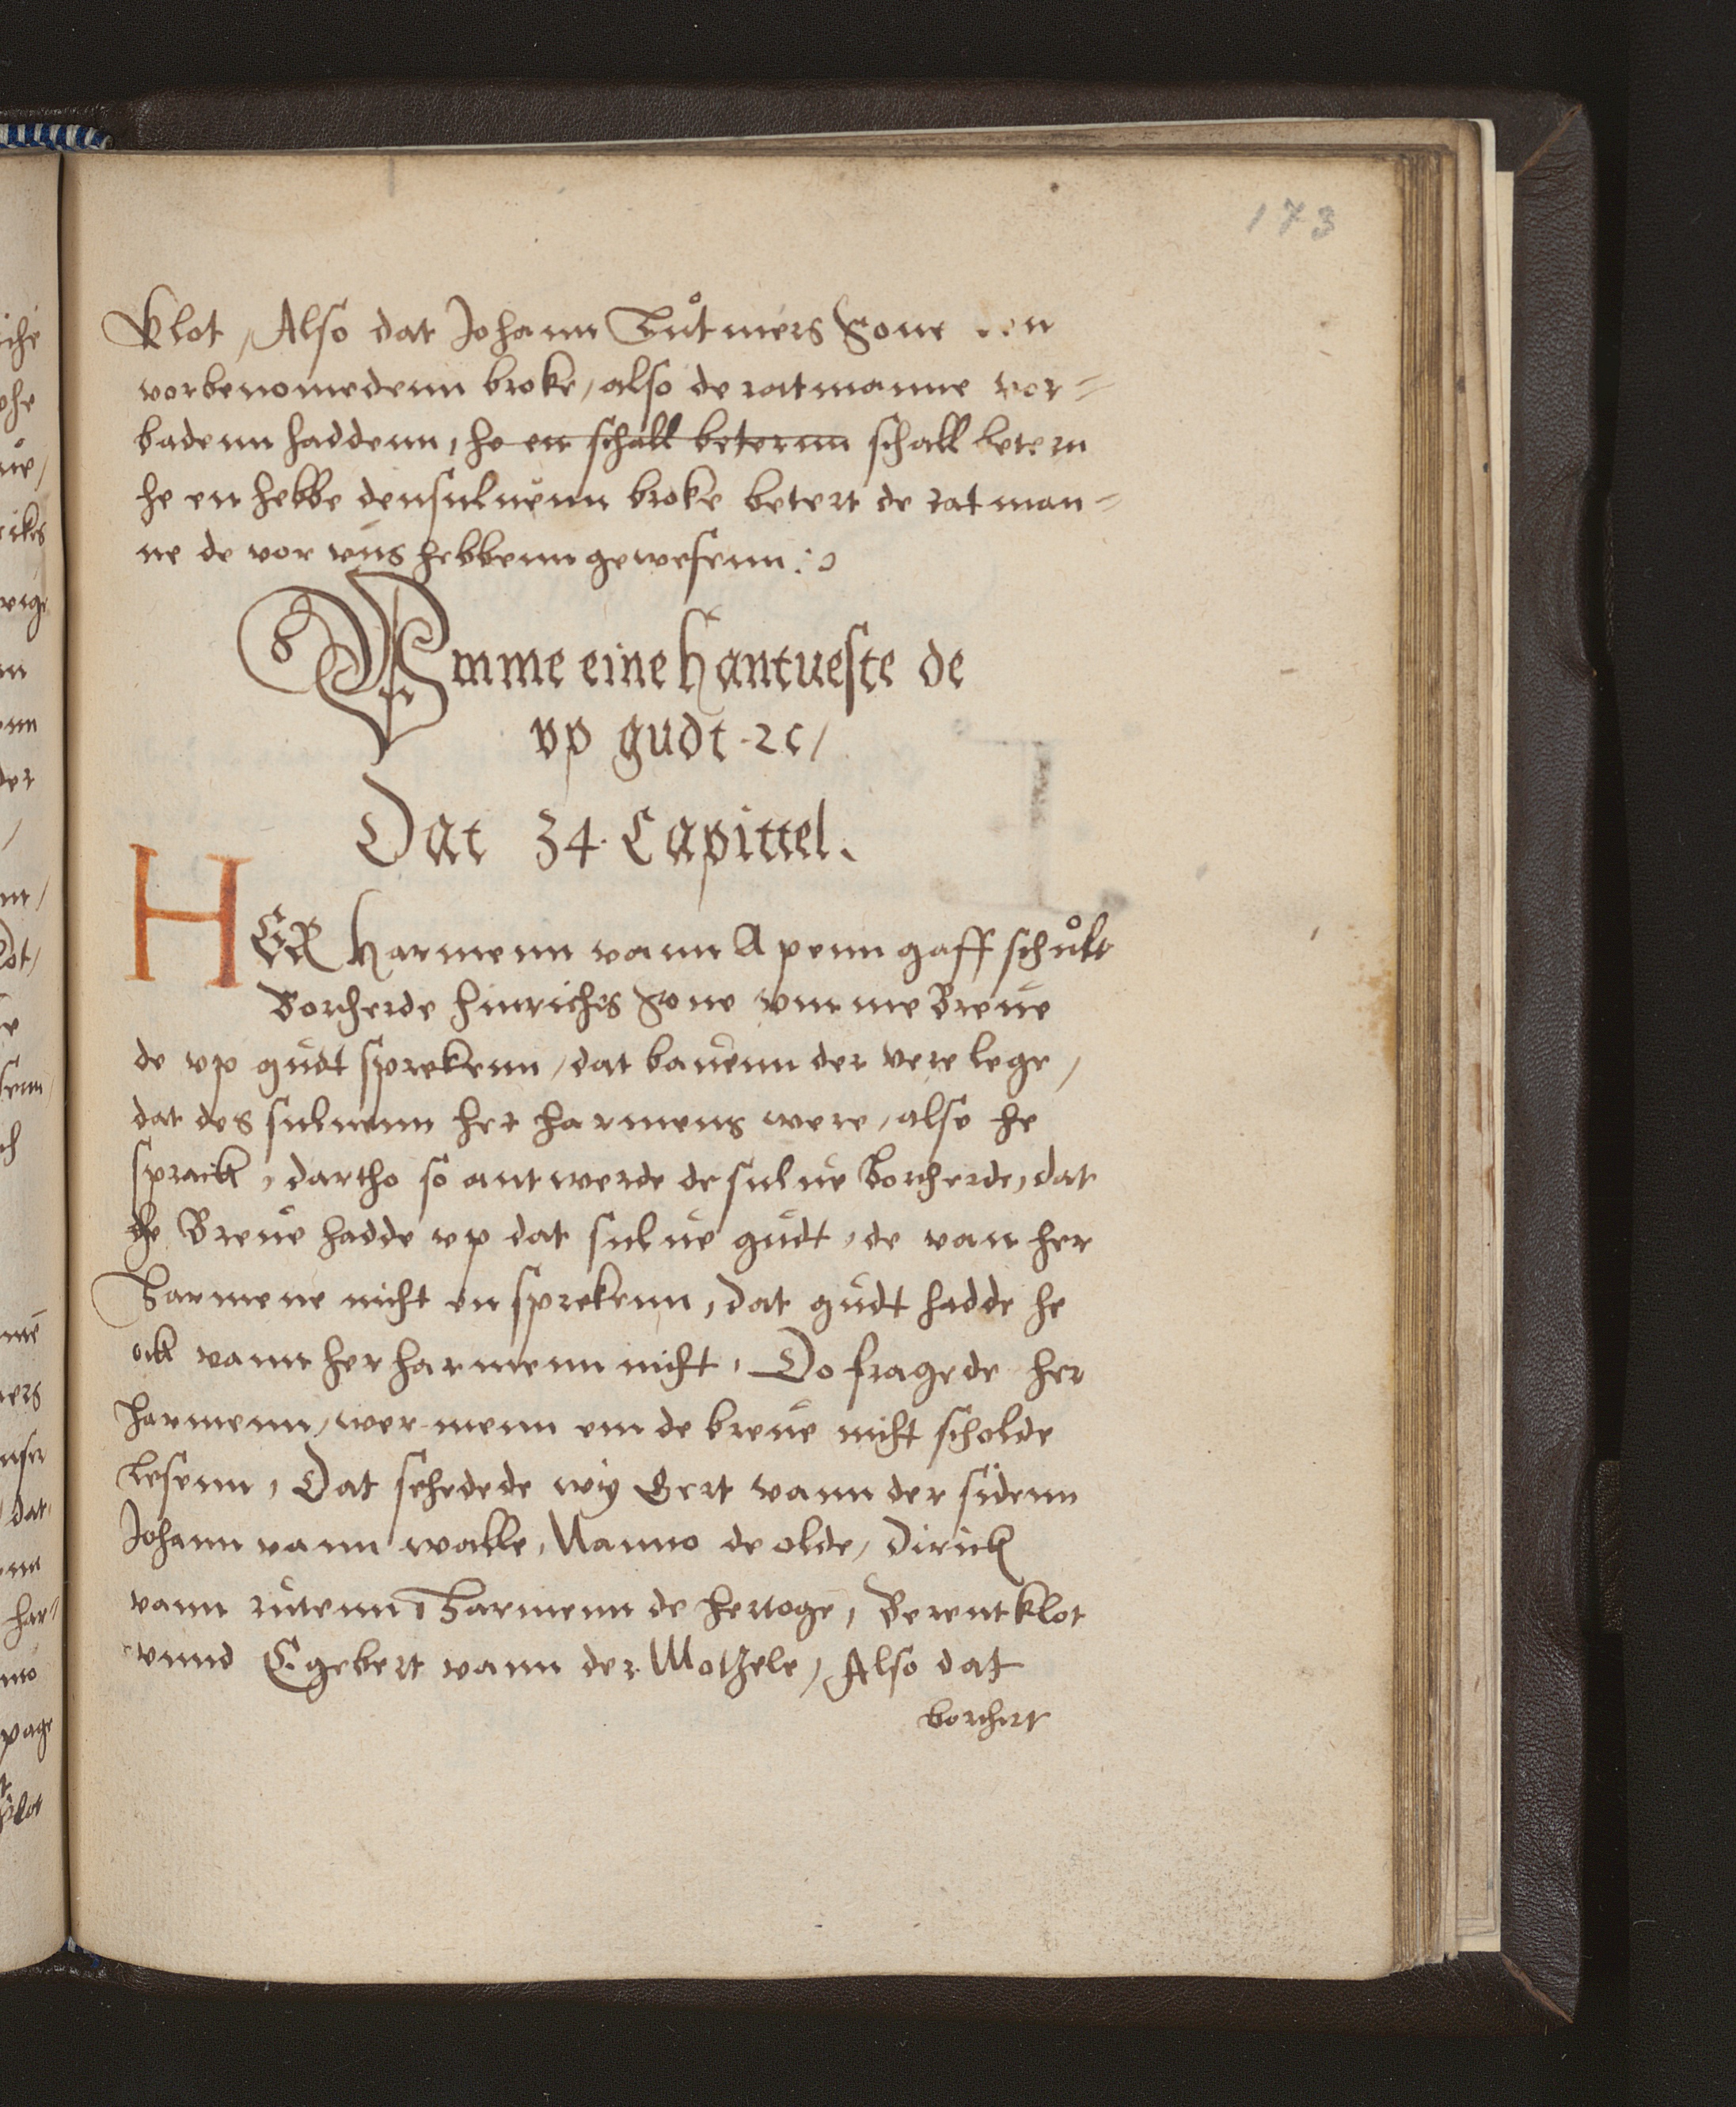 173
Klot, Also dat Johann Lůtmers Sone den
vorbenomedenn broke, also de ratmanne vor=
badenn haddenn, he en schall beternn schall betern
he en hebbe densuluenn broke betert de ratman=
ne de vor vns hebbenn gewesenn :
Vmme eine hantueste de
vp gudt ꝛc/
Dat 34. Capittel.
HER Harmenn vann Apenn gaff schůlt
Borcherde hinriches Sone vmme Breue
de vp gudt sprekenn, dat bauenn der vere lege,
dat des suluenn her harmens were, also he
sprack, dartho so antwerde de sulue Borcherde, dat
he Breue hadde vp dat sulue gudt, de van her
Harmene nicht en sprekenn, dat gudt hadde he
ock vann her harmenn nicht, Do fragede her
harmenn, wer menn em de breue nicht scholde
lesenn, Dat schedede wy Gert vann der sidenn
Johann vann walle, Nanno de olde, Dirick
vann rutenn, Harmenn de hertoge, Berent klot
vnnd Egebert vann der Motzele, Also dat
borchert